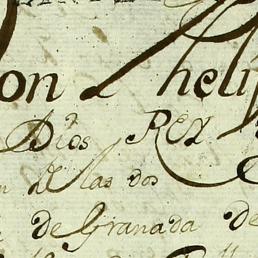 on Pheli
Dios REY
n de las dos
de Granada de